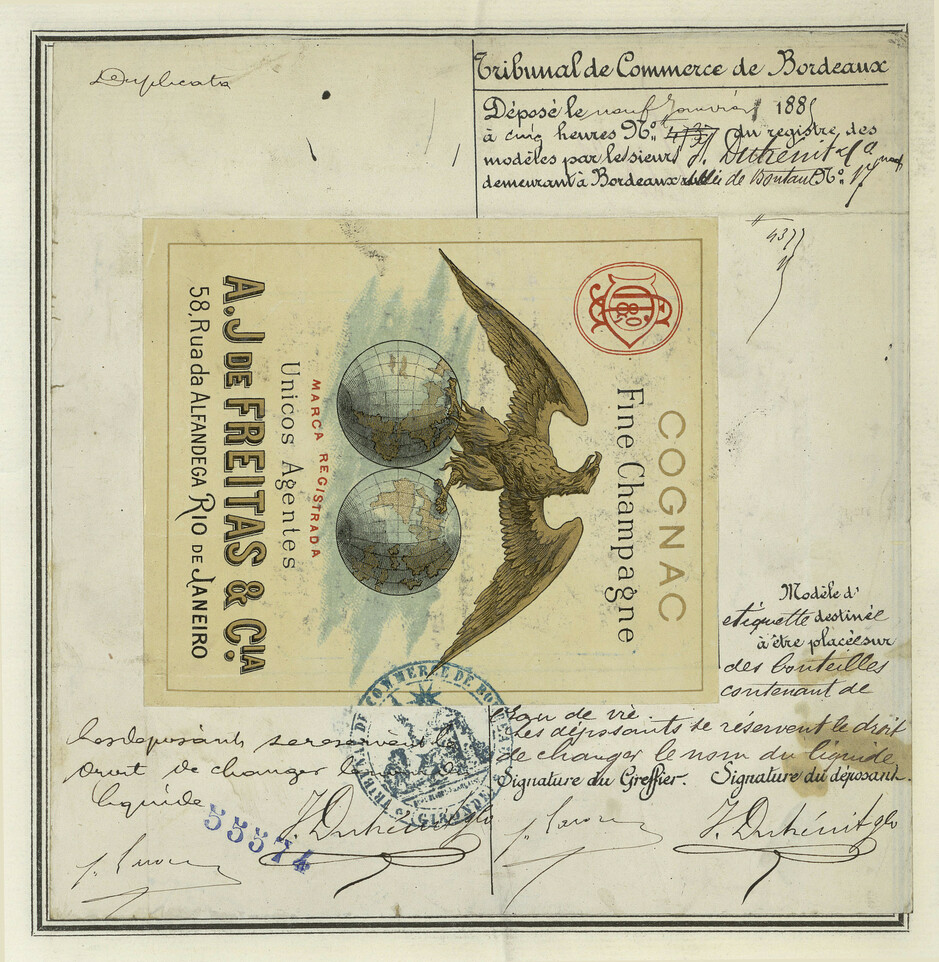 Duplicata
Tribunal de Commerce de Bordeaux
Déposé le neuf Janvier 188
à cinq heures Nº. du registre des
modèles par le sieur J. Duthénit & Cº
demeurant à Bordeaux de Boutaut Nº. 17
4377
COGNAC
Fine Champagne
MARCA REGISTRADA
Unicos Agentes
A. J DE FREITAS & CIA.
58, Rua da ALFANDEGA RIO DE JANEIRO
Modèle d'
etiquette destinée
à être placée sur
des bouteilles
contenant de
Eau de vie
Les déposants se réservent le droit
de changer le nom du liquide
Signature du Greffier. Signature du déposant.
J. Duthénit &Co
Les deposants se reservent le
droit de changer le nom du
liquide
J. Duthénit &Co
55574
TRIBUNAL DE COMMERCE DE BORDEAUX
GIRONDE